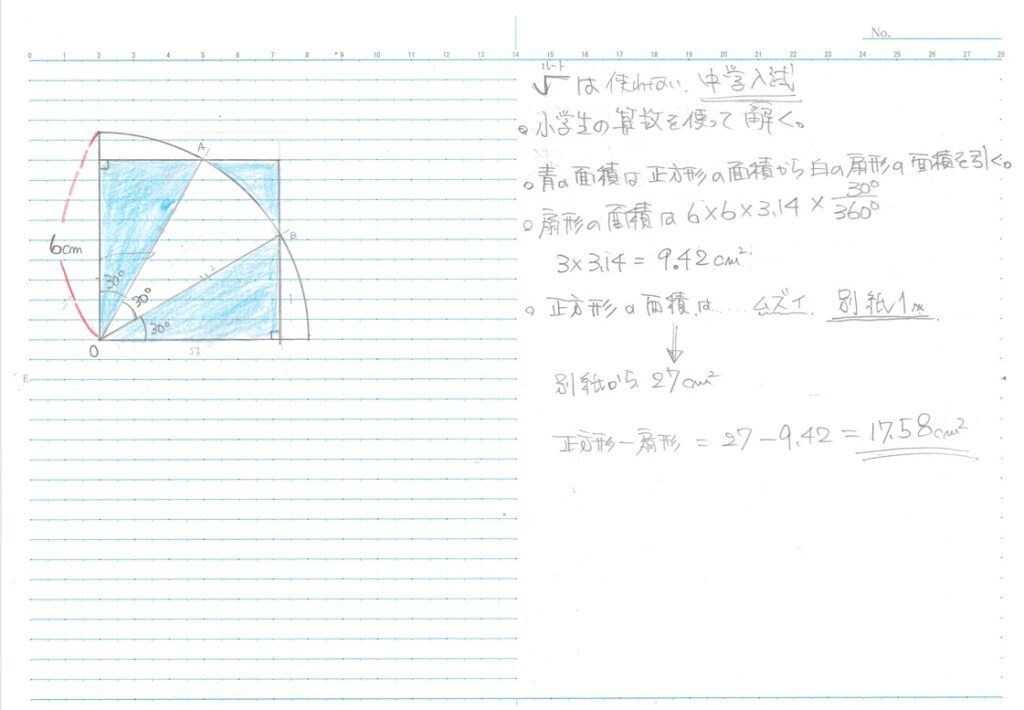 No.
0 1 2 3 4 5 6 7 8 9 10 11 12 13 14 15 16 17 18 19 20 21 22 23 24 25 26 27 28
A
B
6cm
30°
30°
30°
2
1
O
√3
E
ルート
√ は 使わない. 中学入試
小学生の算数を使って解く。
青の面積は正方形の面積から白の扇形の面積を引く。
扇形の面積は 6×6×3.14× 30°/360°
3×3.14=9.42cm²
正方形の面積は……ムズイ 別紙1
別紙から 27cm²
正方形−扇形 = 27−9.42 = 17.58cm²